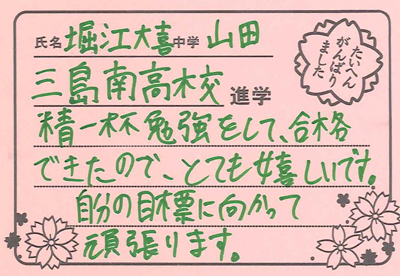 氏名 堀江大喜 中学 山田
たいへん
がんばり
ました
三島南高校 進学
精一杯勉強をして、合格
できたので、とても嬉しいです。
自分の目標に向かって
頑張ります。